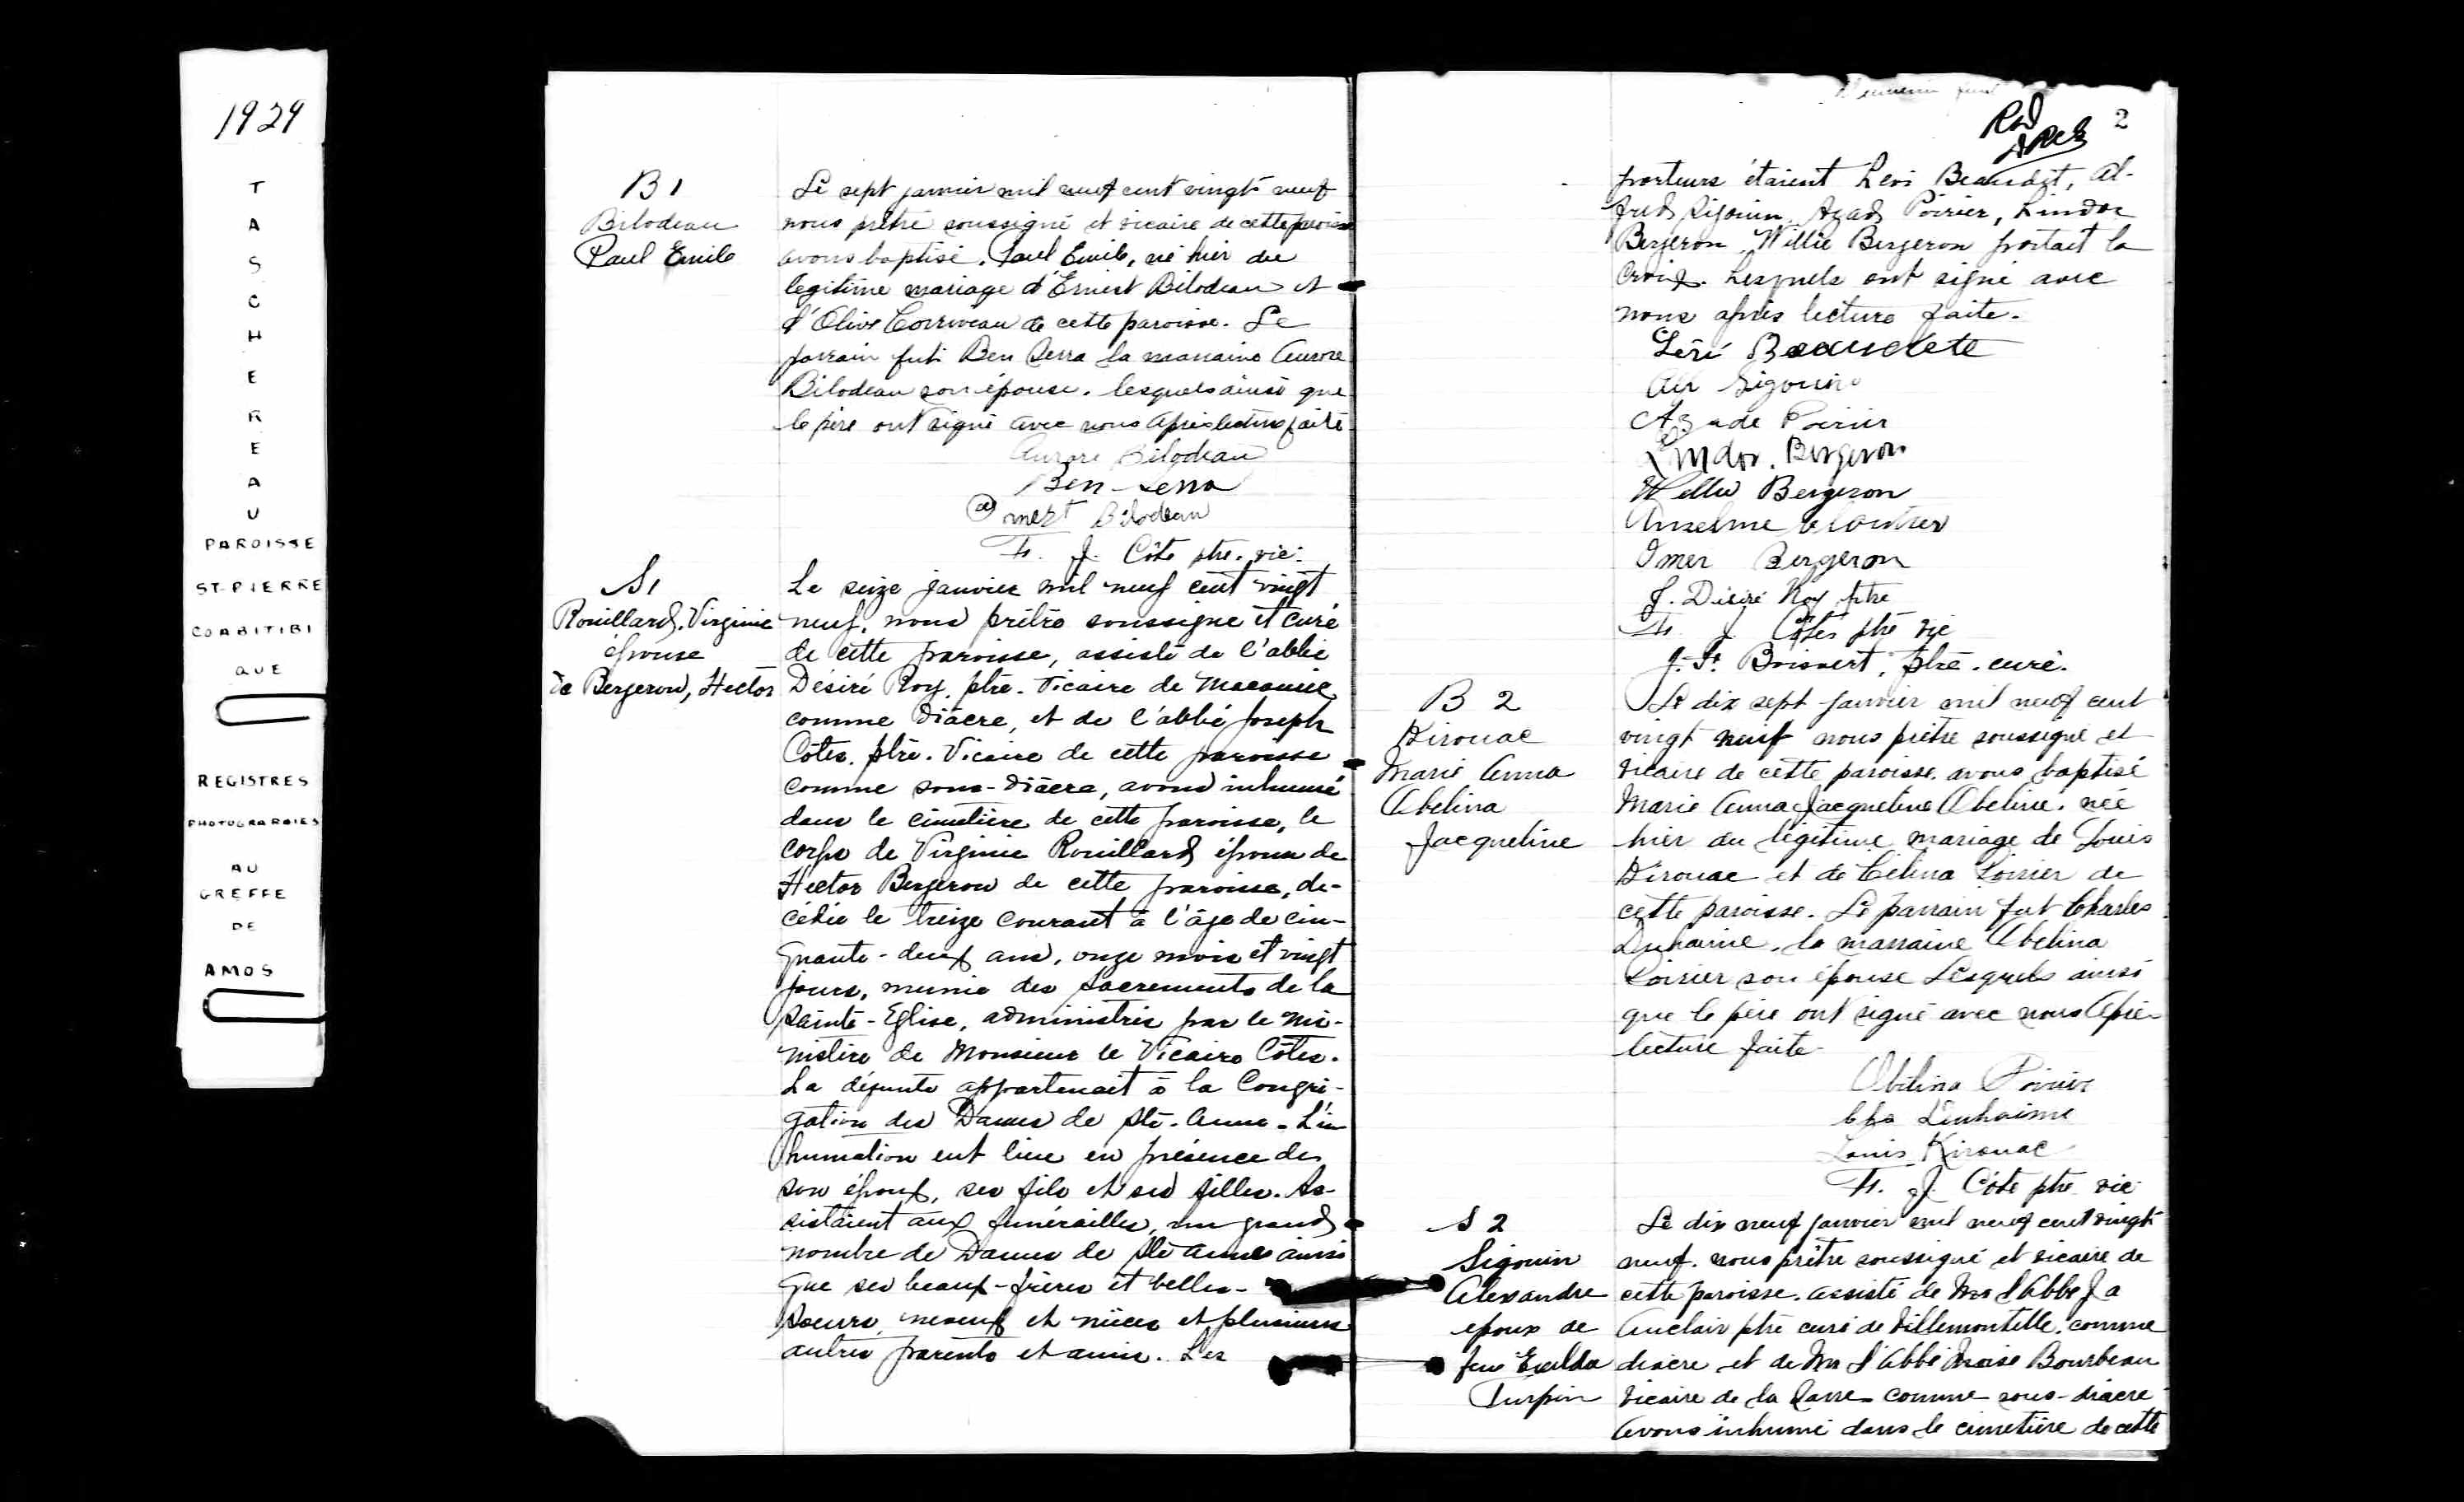 1929
TASCHEREAU
PAROISSE
ST-PIERRE
COABITIBI
QUE
REGISTRES
PHOTOGRAPHIES
AU
GREFFE
DE
AMOS
B 1
Bilodeau
Paul Emile
Le sept janvier mil neuf cent vingt neuf
nous prêtre soussigné et vicaire de cette paroisse
avons baptisé, Paul Emile, né hier du
légitime mariage d'Ernest Bilodeau et
d'Olive Corriveau de cette paroisse. Le
parrain fut Ben Serra la marraine Aurore
Bilodeau son épouse. lesquels ainsi que
le père ont signé avec nous après lecture faite
Aurore Bilodeau
Ben-Serra
Ernest Bilodeau
J. Côté ptre. vic.
S 1
Rouillard, Virginie
épouse
de Bergeron, Hector
Le seize janvier mil neuf cent vingt
neuf, nous prêtre soussigné et curé
de cette paroisse, assisté de l'abbé
Désiré Roy, ptre. Vicaire de Macamic
comme diacre, et de l'abbé Joseph
Côtes. ptre. Vicaire de cette paroisse
comme sous-diacre, avons inhumé
dans le cimetière de cette paroisse, le
corps de Virginie Rouillard épouse de
Hector Bergeron de cette paroisse, dé-
cédée le treize courant à l'âge de cin-
quante-deux ans, onze mois et vingt
jours, munie des Sacrements de la
Sainte-Eglise, administrés par le mi-
nistère de Monsieur le Vicaire Côtes.
La défunte appartenait à la Congré-
gation des Dames de Ste-Anne. L'in-
humation eut lieu en présence de
son époux, ses fils et ses filles. As-
sistaient aux funérailles, un grand
nombre de Dames de Ste Anne ainsi
que ses beaux-frères et belles-
soeurs, neveux et nièces et plusieurs
autres parents et amis. Les
2
porteurs étaient Léri Beaudet, Al-
fred Sigouin, Azade Poirier, Lindor
Bergeron, Willie Bergeron portait la
Croix. Lesquels ont signé avec
nous après lecture faite.
Léri Beaudete
Alf Sigouin
Azade Poirier
Lindor. Bergeron
Willie Bergeron
Anselme Cloutier
Omer Bergeron
J. Désiré Roy ptre
J. Côtes ptre vic
J. Boisvert, ptre. curé.
B 2
Kirouac
Marie Anna
Abelina
Jacqueline
Le dix sept janvier mil neuf cent
vingt neuf nous prêtre soussigné et
vicaire de cette paroisse. avons baptisé
Marie Anna Jacqueline Abeline. née
hier du légitime mariage de Louis
Kirouac et de Célina Poirier de
cette paroisse. Le parrain fut Charles
Duhaime, la marraine Abelina
Poirier son épouse Lesquels ainsi
que le père ont signé avec nous après
lecture faite.
Abélina Poirier
Chs Duhaime
Louis Kirouac
J. Côté ptre vic
S 2
Sigouin
Alexandre
époux de
feue Exilda
Turpin
Le dix neuf janvier mil neuf cent vingt
neuf. nous prêtre soussigné et vicaire de
cette paroisse. assisté de Mr l'Abbé J a
Auclair ptre curé de Villemontelle. comme
diacre et de Mr l'Abbé Moise Bourbeau
Vicaire de la Sarre comme sous-diacre
avons inhumé dans le cimetière de cette